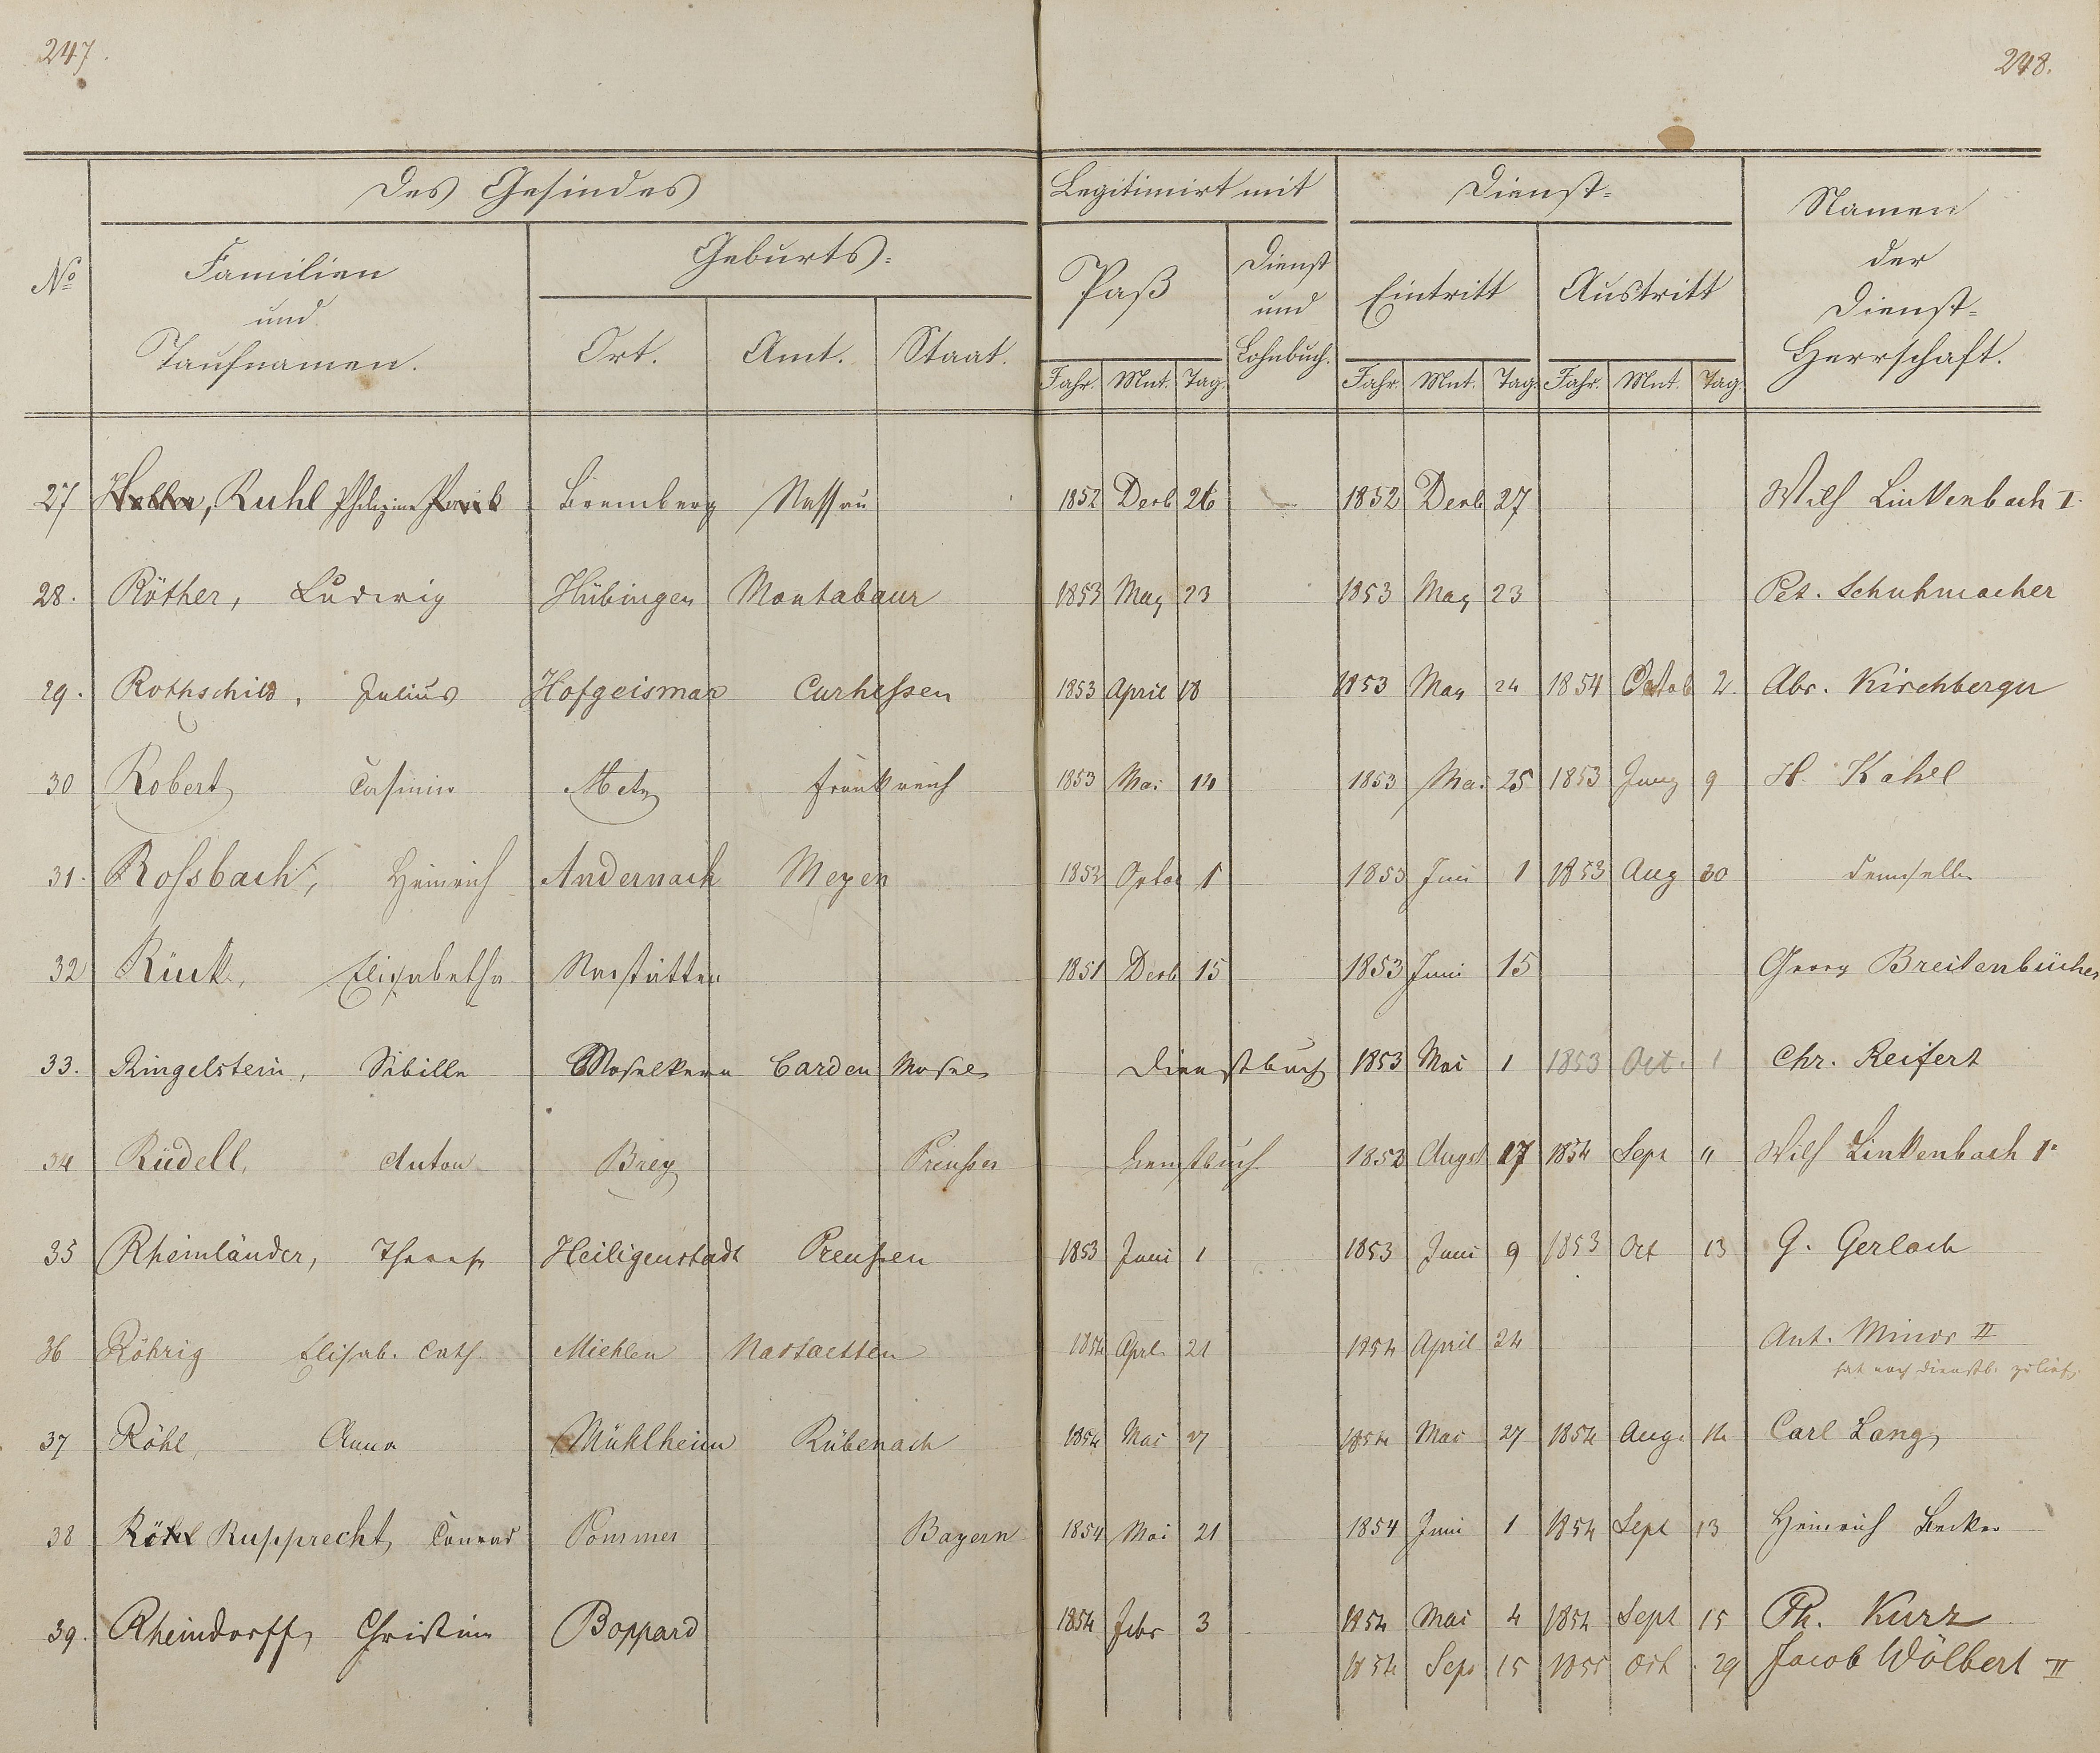 247.
248.
Des Gesindes
Legitimirt mit
Dienst-
Namen
der
Dienst-
Herrschaft.
No
Familien
und
Taufnamen.
Geburts-
Ort. Amt. Staat.
Paß
Dienst
und
Lohnbuch.
Eintritt
Austritt
Jahr. Mnt. Tag. Jahr. Mnt. Tag. Jahr. Mnt. Tag.
27 Ruhl Philippine Bremberg Nassau 1852 Decb 26 1852 Decb 27 Wilh Linkenbach I.
28. Röther, Ludwig Hübingen Montabaur 1853 May 23 1853 May 23 Pet. Schuhmacher
29. Rothschild, Julius Hofgeismar Curhessen 1853 April 18 1853 May 24 1854 Octob 2. Abr. Kirchberger
30 Robert Casimir Metz Frankreich 1853 Mai 14 1853 Mai 25 1853 Juny 9 H. Kahel
31. Rossbach, Heinrich Andernach Meyen 1852 1 1853 Juni 1 1853 Aug 30 demselben
32 Rück, Elisabetha Nastätten 1851 Decb 15 1853 Juni 15 Georg Breitenbücher
33. Ringelstein, Sibille Moselkern Carden Mosel Dienstbuch 1853 Mai 1 1853 Oct. 1 Chr. Reifert
34 Rüdell, Anton Brey Preußen Dienstbuch 1853 August 17 1854 Sept 11 Wilh Linkenbach I.
35 Rheinländer, Therese Heiligenstadt Preußen 1853 Juni 1 1853 Juni 9 1853 Oct 13 G. Gerlach
36 Röhrig Elisab. Cath. Miehlen Nastaetten 1854 Aprl. 21 1854 April 24 Ant. Minor II
hat noch Dienstb. zu lief.
37 Röhl, Anna Mühlheim Rübenach 1854 Mai 27 1854 Mai 27 1854 Aug. 14 Carl Lang
38 Röhl Rupprecht, Conrad Pommer Bayern 1854 Mai 21 1854 Juni 1 1854 Sept 13 Heinrich Becker
39. Rheindorff, Christine Boppard 1854 Febr 3 1854 Mai 4 1854 Sept 15 Ph. Kurz
1854 Sept 15 1855 Oct. 29 Jacob Wölbert II